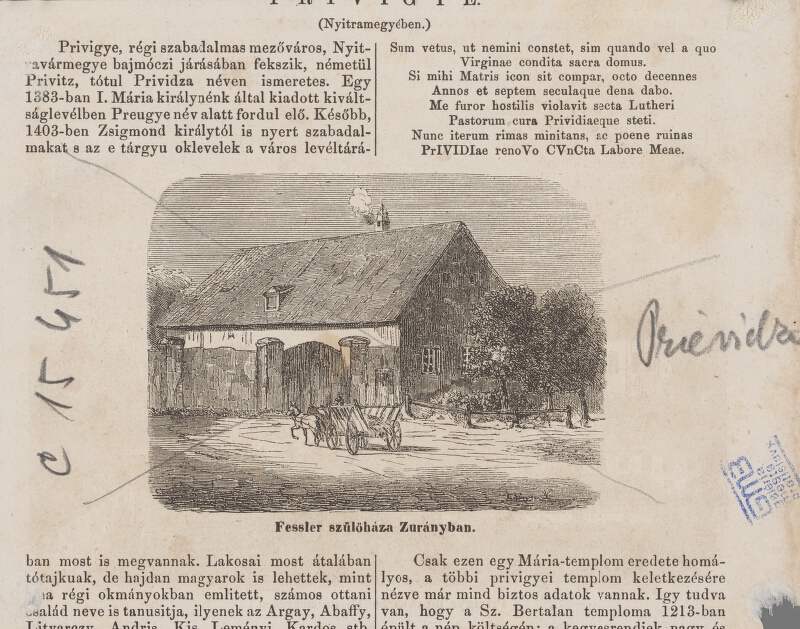 PRIVIGYE.
(Nyitramegyében.)
Privigye, régi szabadalmas mezőváros, Nyit-
avármegye bajmóczi járásában fekszik, németül
Privitz, tótul Prividza néven ismeretes. Egy
1383-ban I. Mária királynénk által kiadott kivált-
ságlevélben Preugye név alatt fordul elő. Később,
1403-ben Zsigmond királytól is nyert szabadal-
makat s az e tárgyu oklevelek a város levéltárá-
Sum vetus, ut nemini constet, sim quando vel a quo
Virginae condita sacra domus.
Si mihi Matris icon sit compar, octo decennes
Annos et septem seculaque dena dabo.
Me furor hostilis violavit secta Lutheri
Pastorum cura Prividiaeque steti.
Nunc iterum rimas minitans, ac poene ruinas
PrIVIDIae renoVo CVnCta Labore Meae.
C 15 451
Prievidza
Fessler szülőháza Zurányban.
ban most is megvannak. Lakosai most átalában
tótajkuak, de hajdan magyarok is lehettek, mint
a régi okmányokban emlitett, számos ottani
család neve is tanusitja, ilyenek az Argay, Abaffy,
Litvarczy, Andris, Kis, Leményi, Kardos stb.
Csak ezen egy Mária-templom eredete homá-
lyos, a többi privigyei templom keletkezésére
nézve már mind biztos adatok vannak. Igy tudva
van, hogy a Sz. Bertalan temploma 1213-ban
épült a nép költségén; a kegyesrendiek nagy és